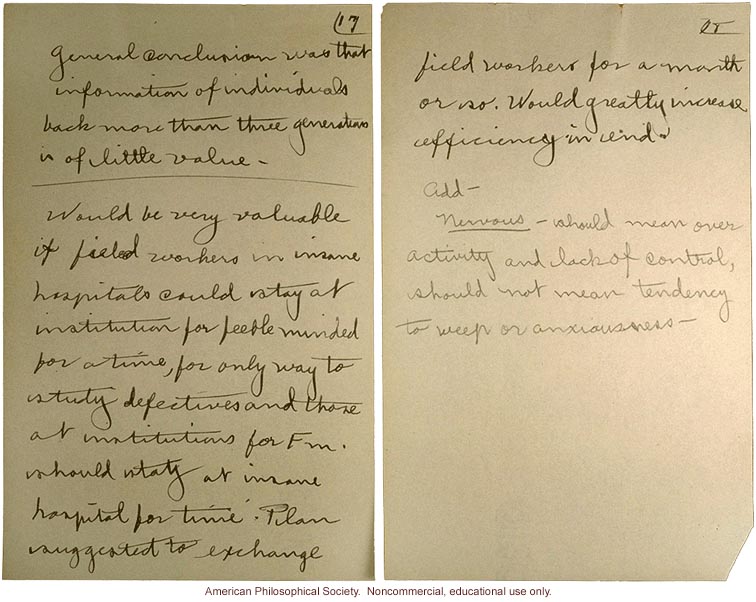 17
General conclusion was that
information of individuals
back more than three generations
is of little value -
Would be very valuable
if field workers in insane
hospitals could stay at
institution for feeble minded
for a time, for only way to
study defectives and those
at institutions for F m.
should stay at insane
hospital for time. Plan
suggested to exchange
field workers for a month
or so. Would greatly increase
efficiency in end.
Add -
Nervous - should mean over
activity and lack of control,
should not mean tendency
to weep or anxiousness -
American Philosophical Society. Noncommercial, educational use only.